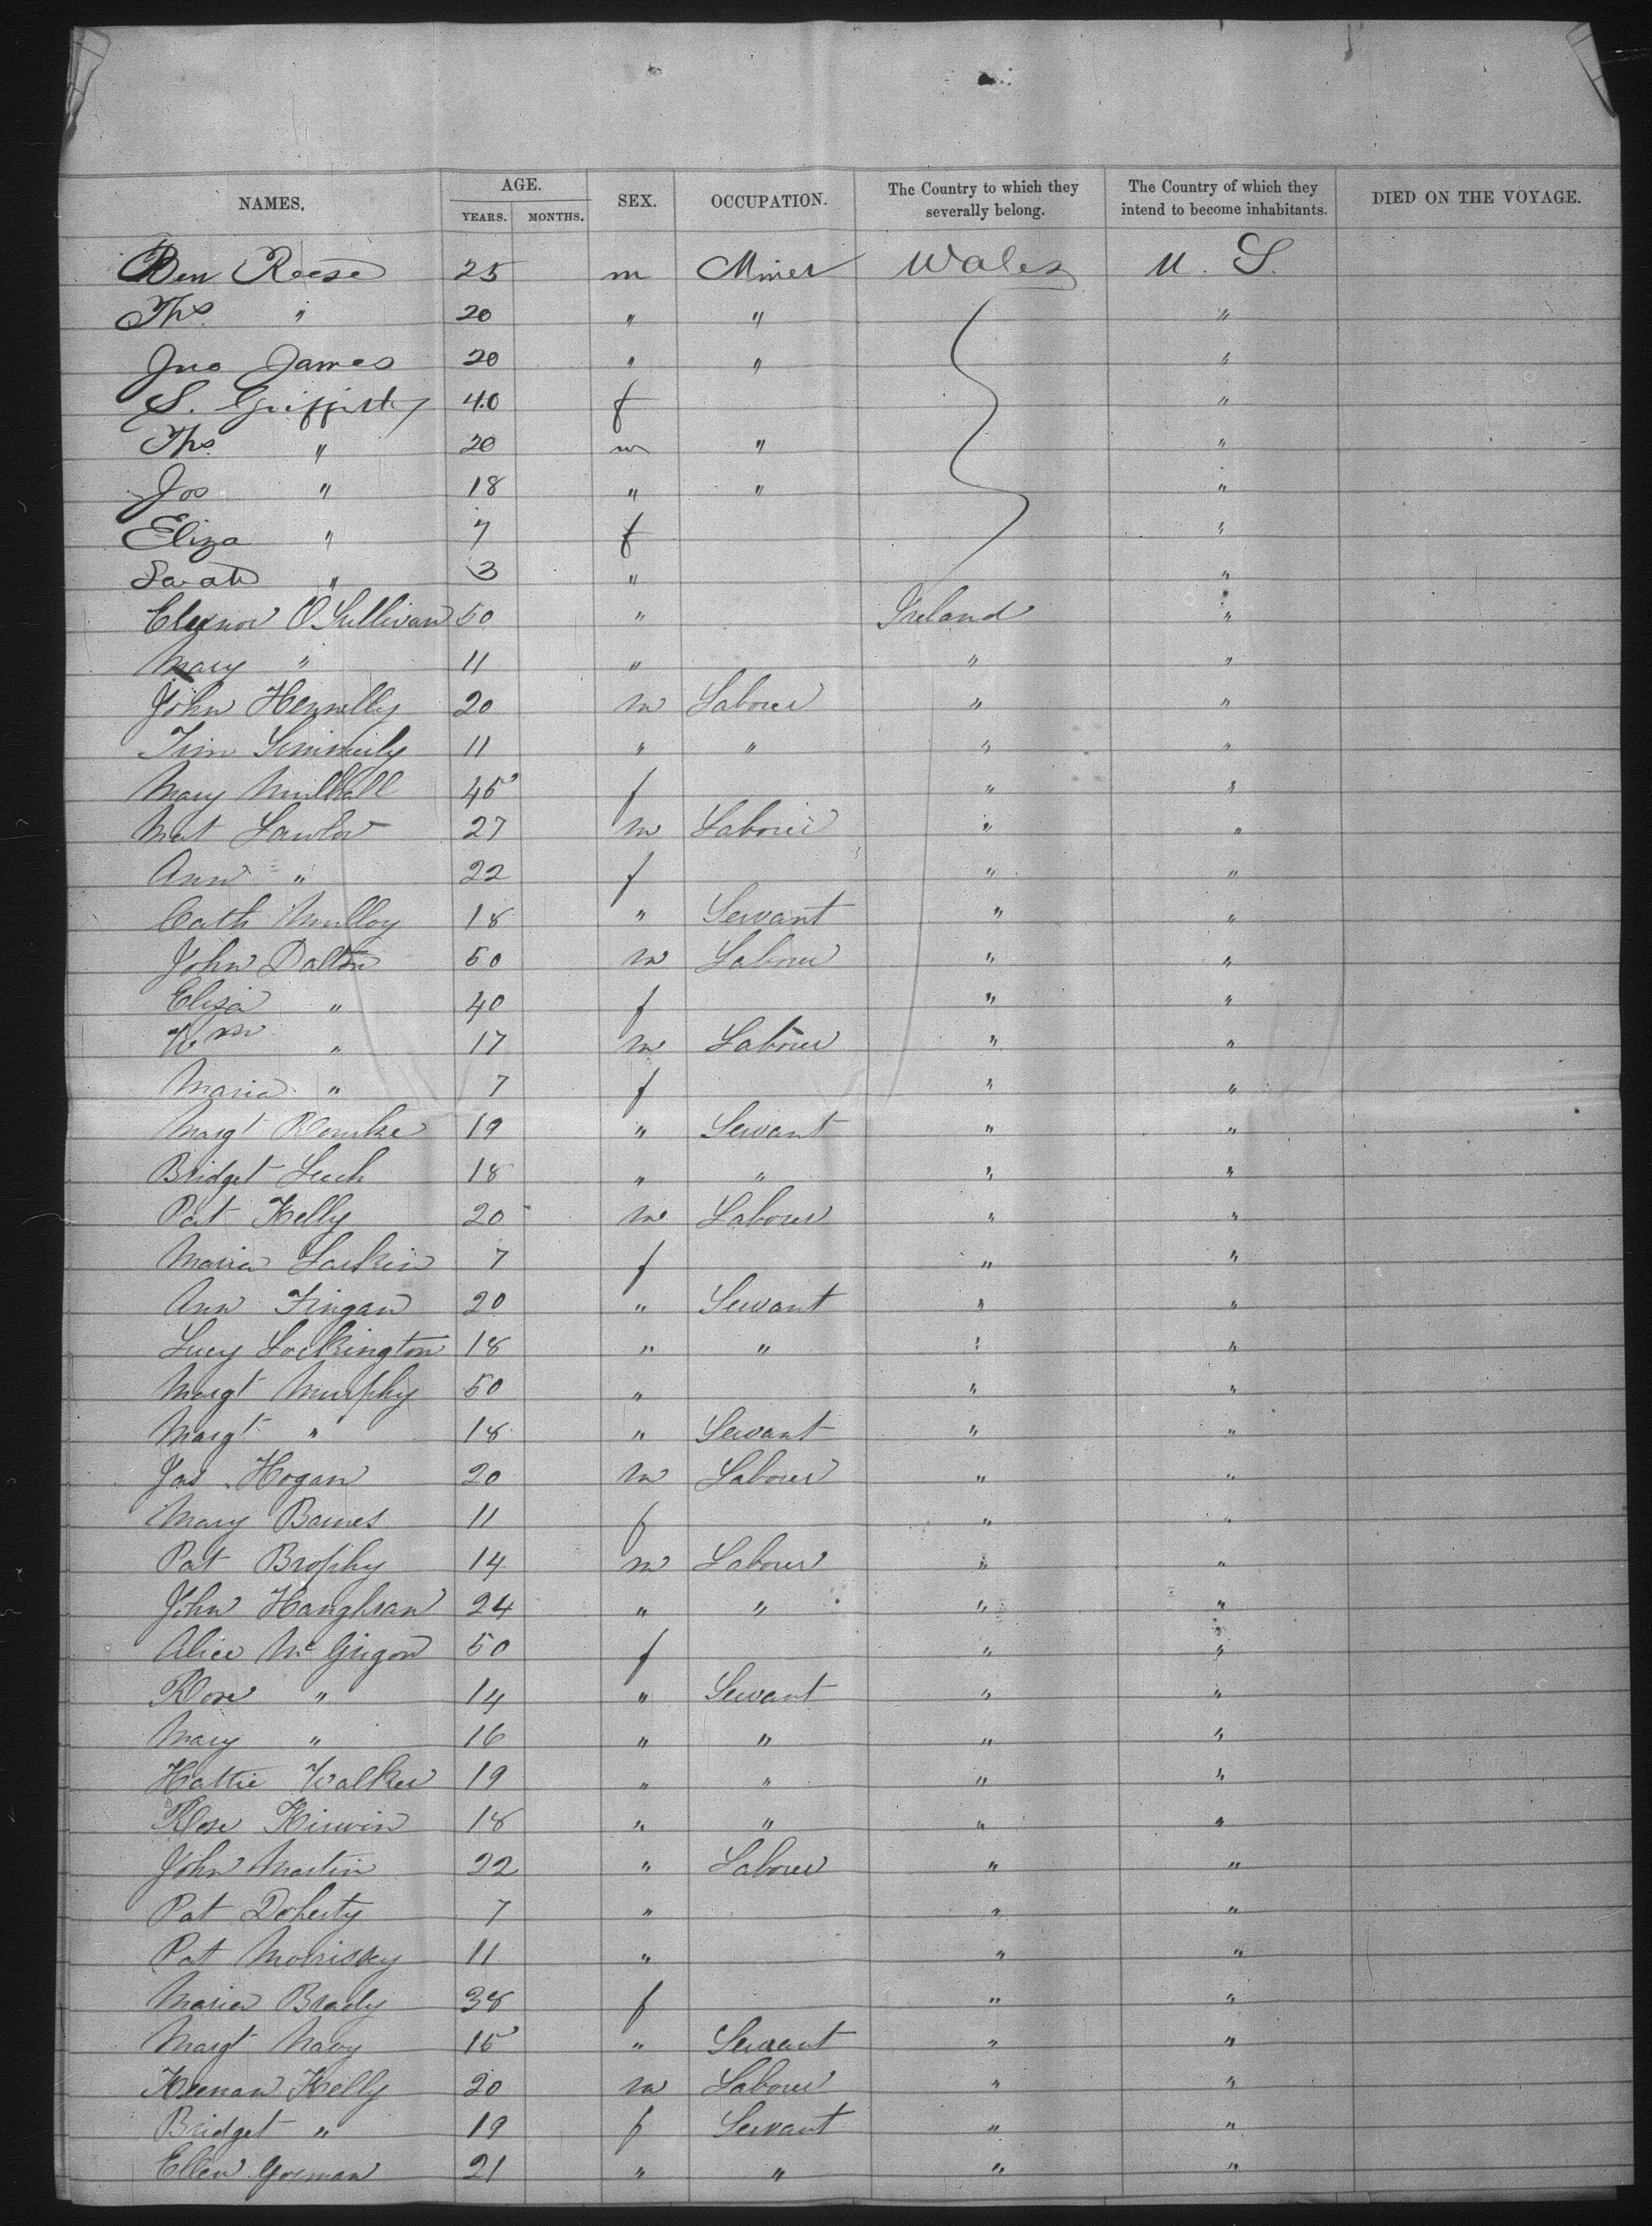 NAMES. AGE. YEARS. MONTHS. SEX. OCCUPATION. The Country to which they severally belong. The Country of which they intend to become inhabitants. DIED ON THE VOYAGE.
Ben Reese 25 m Miner Wales U. S.
Ths " 20 " " "
Jno James 20 " " "
S. Griffiths 40 f "
Ths " 20 m " "
Jos " 18 " " "
Eliza " 7 f "
Sarah " 3 " "
Eleanor O'Sullivan 50 " Ireland "
Mary " 11 " " "
John Hennelly 20 m Laborer " "
Tim 11 " " " "
Mary Mulhall 45 f " "
Mat Lawlor 27 m Laborer " "
Ann " 22 f " "
Cath Mulloy 18 " Servant " "
John Dalton 50 m Laborer " "
Eliza " 40 f " "
Wm " 17 m Laborer " "
Maria " 7 f " "
Margt Rourke 19 " Servant " "
Bridget 18 " " " "
Pat Kelly 20 m Laborer " "
Maria Larkin 7 f " "
Ann Fingan 20 " Servant " "
Lucy Lockington 18 " " " "
Margt Murphy 50 " " "
Margt " 18 " Servant " "
Jas Hogan 20 m Laborer " "
Mary Barnes 11 f " "
Pat Brophy 14 m Laborer " "
John Hanghran 24 " " " "
Alice McGrigor 50 f " "
Rose " 14 " Servant " "
Mary " 16 " " " "
Hattie Walker 19 " " " "
Rose Kirwin 18 " " " "
John Martin 22 " Laborer " "
Pat Doherty 7 " " "
Pat Morrissey 11 " " "
Maria Brady 38 f " "
Margt Navy 15 " Servant " "
Keenan Kelly 20 m Laborer " "
Bridget " 19 f Servant " "
Ellen Gorman 21 " " " "